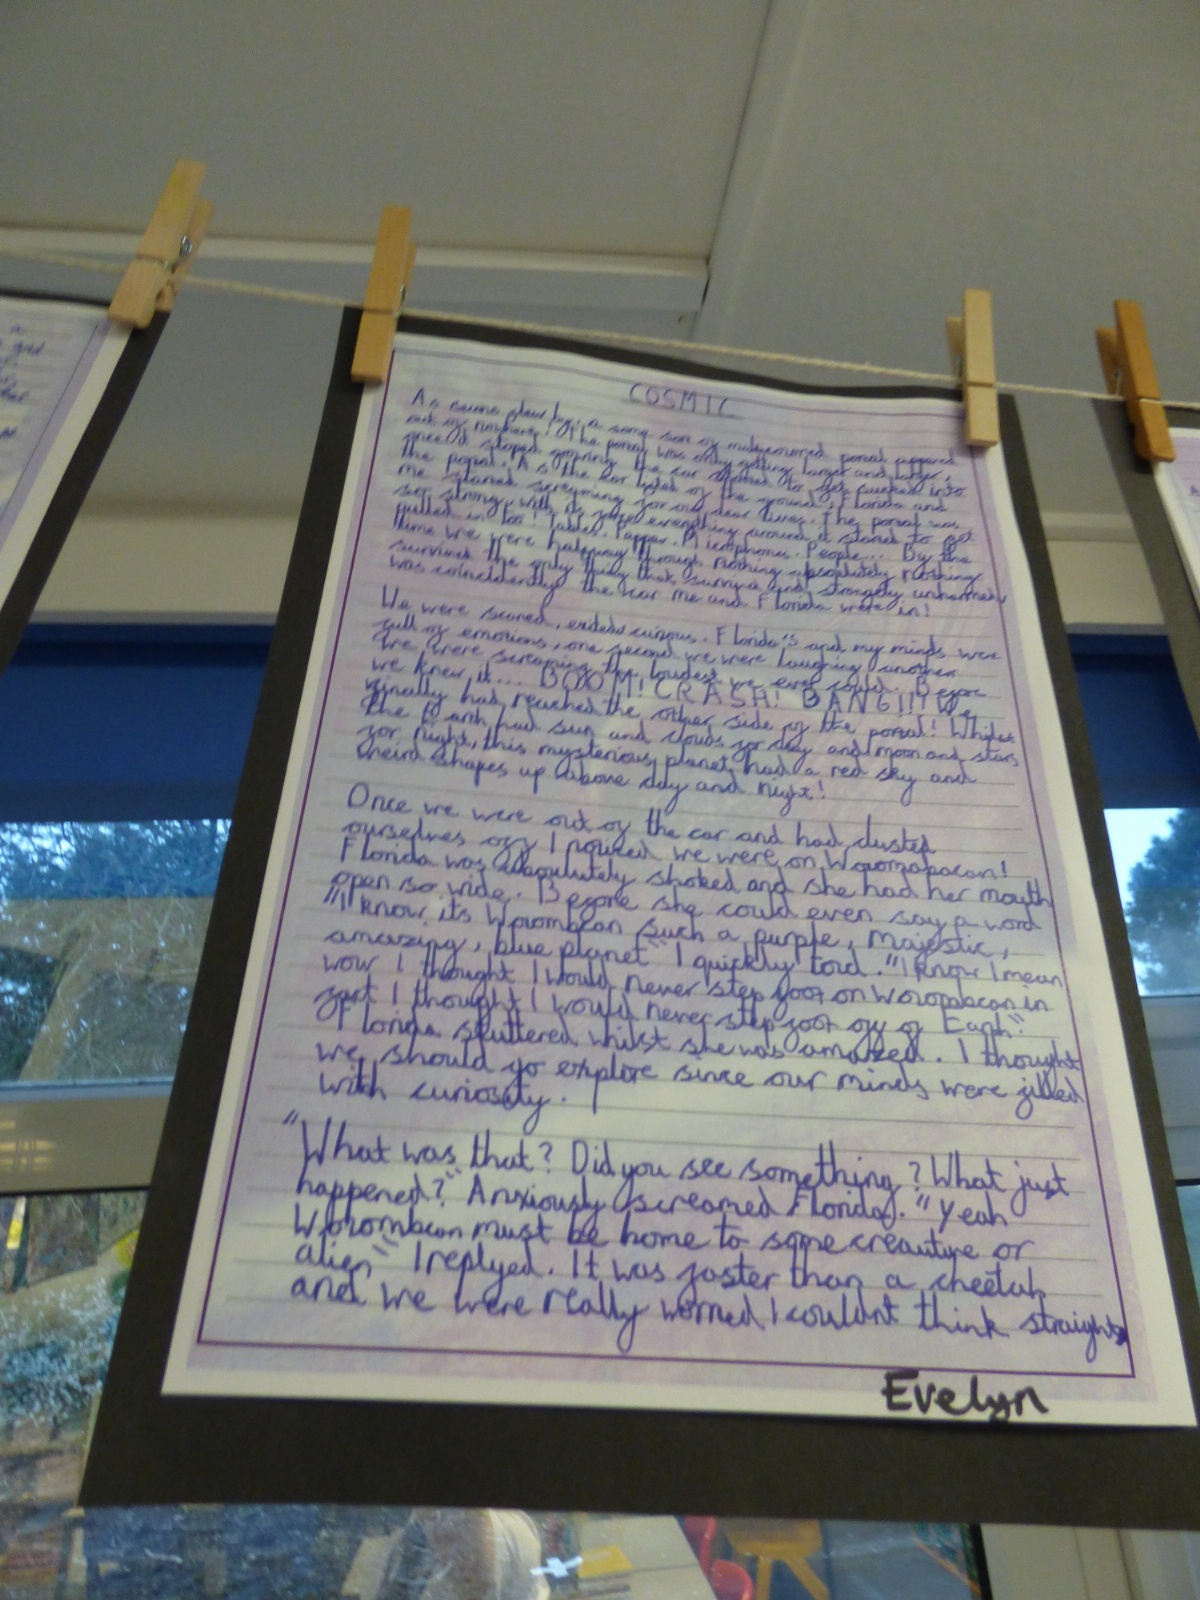 COSMIC
As secons flew by, a some sort of multicoloured portal appared
out of nowhere! The portal was only getting larger and larger,
once it stoped growing the car started to get sucked into
the portal. As the car lifted of the ground, Florida and
me stared screyming for our dear lives. The portal was
so strong, with its force everything around it stared to get
pulled in too! Tables. Papper. Miicrphones. People... By the
time we were halfway through nothing absolutely nothing
survived the only thing that survived and strangely unharmed
was coincidently the car me and Florida were in!
We were scared, exided, curious. Florida's and my minds were
full of emotions, one second we were laughing another
we were screaming the loudest we ever could. Before
we knew it... BOOM! CRASH! BANG!!! We
finally had reached the other side of the portal! Whilst
the Earth had sun and clouds for day and moon and stars
for night, this mysterious planet had a red sky and
weird shapes up above day and night!
Once we were out of the car and had dusted
ourselves off I noticed we were on
Florida was absoulutely shoked and she had her mouth
open so wide. Before she could even say a word
"I know its Worombcan such a purple, majestic,
amazing, blue planet" I quickly told. "I know I mean
wow I thought I would never step foot on in
fact I thought I would never step foot off of Earth"
Florida stuttered whilst she was amazed. I thought
we should go explore since our minds were filled
with curiosity.
"What was that? Did you see something? What just
happened?" Anxiously screamed Florida. "Yeah
Worombcan must be home to some creauture or
alien" I replyed. It was faster than a cheetah
and we were really worried I couldnt think straight
Evelyn